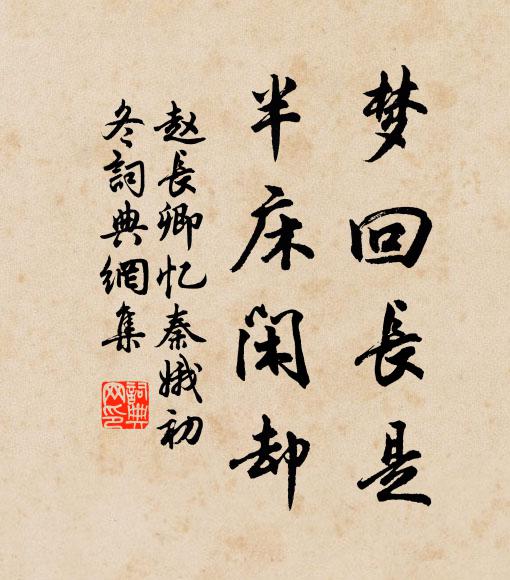 梦回長是
半床闲却
赵長卿忆秦娥初
冬詞典網集
詞典
网印